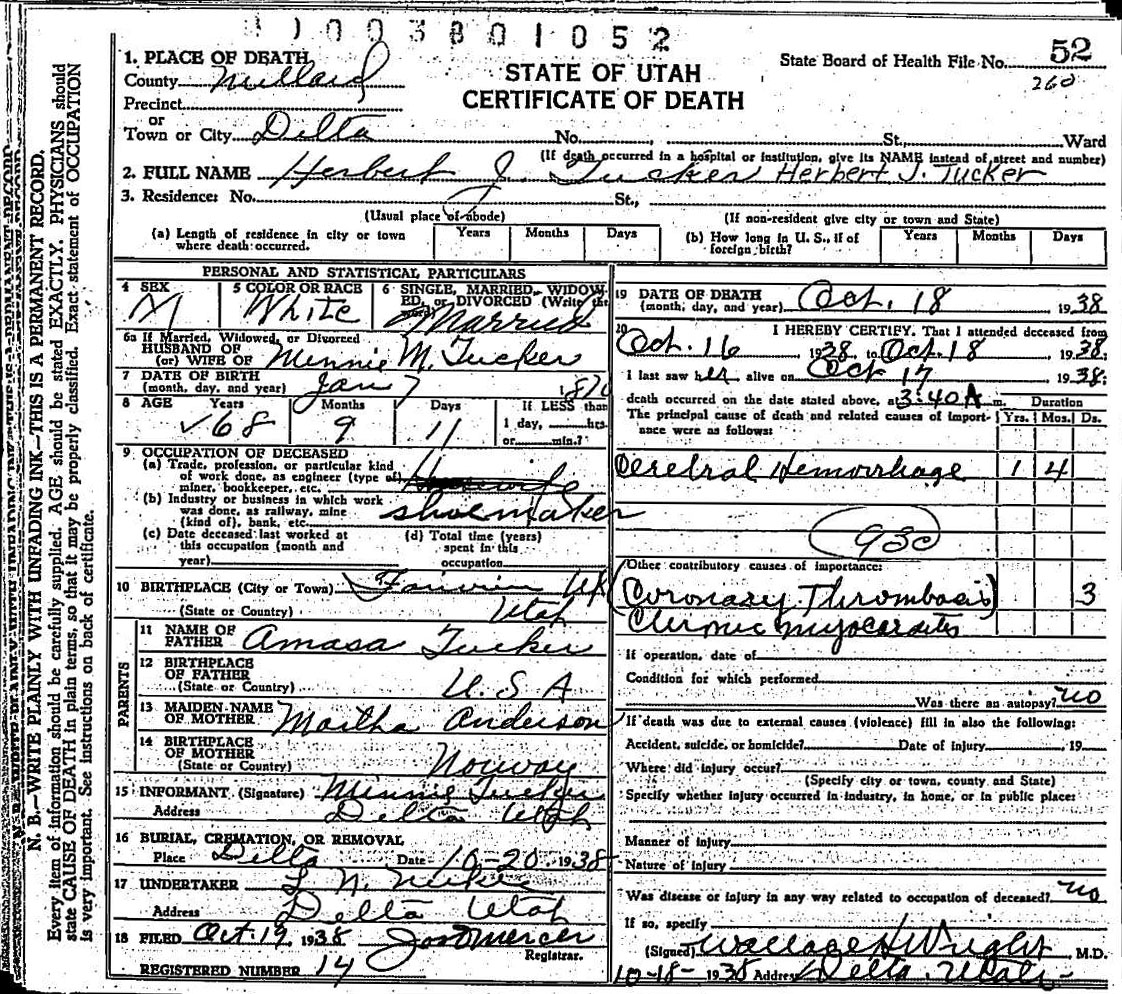 1003801052
1. PLACE OF DEATH
County Millard
Precinct
or
Town or City Delta No. St., Ward
STATE OF UTAH
CERTIFICATE OF DEATH
State Board of Health File No. 52
260
(If death occurred in a hospital or institution, give its NAME instead of street and number)
2. FULL NAME Herbert J. Tucker Herbert J. Tucker
3. Residence: No. St.,
(Usual place of abode) (If non-resident give city or town and State)
(a) Length of residence in city or town where death occurred. Years Months Days
(b) How long in U. S., if of foreign birth? Years Months Days
PERSONAL AND STATISTICAL PARTICULARS
4 SEX M
5 COLOR OR RACE White
6 SINGLE, MARRIED, WIDOWED, or DIVORCED (Write the word) Married
6a If Married, Widowed, or Divorced
HUSBAND OF
(or) WIFE OF Minnie M. Tucker
7 DATE OF BIRTH
(month, day, and year) Jan 7 1870
8 AGE Years 68 Months 9 Days 11 If LESS than 1 day, hrs. or min.?
9 OCCUPATION OF DECEASED
(a) Trade, profession, or particular kind of work done, as engineer (type of) miner, bookkeeper, etc. Housewife
(b) Industry or business in which work was done, as railway, mine (kind of), bank, etc. shoemaker
(c) Date deceased last worked at this occupation (month and year)
(d) Total time (years) spent in this occupation
10 BIRTHPLACE (City or Town) Ut
(State or Country) Utah
PARENTS
11 NAME OF FATHER Amasa Tucker
12 BIRTHPLACE OF FATHER
(State or Country) U. S. A
13 MAIDEN NAME OF MOTHER Martha Anderson
14 BIRTHPLACE OF MOTHER
(State or Country) Norway
15 INFORMANT (Signature) Minnie Tucker
Address Delta Utah
16 BURIAL, CREMATION, OR REMOVAL
Place Delta Date 10-20 1938
17 UNDERTAKER
Address Delta Utah
18 FILED Oct 19, 1938 Mercer
Registrar.
REGISTERED NUMBER 14
19 DATE OF DEATH
(month, day, and year) Oct. 18 1938
20 I HEREBY CERTIFY, That I attended deceased from
Oct. 16 1938 to Oct. 18 1938:
I last saw her alive on Oct 17 1938:
death occurred on the date stated above, at 3:40 A m. Duration
The principal cause of death and related causes of importance were as follows: Yrs. Mos. Ds.
Cerebral Hemorrhage 1 4
93c
Other contributory causes of importance:
(Coronary Thrombosis) 3
Chronic myocarditis
If operation, date of
Condition for which performed
Was there an autopsy? no
If death was due to external causes (violence) fill in also the following:
Accident, suicide, or homicide? Date of injury 19
Where did injury occur?
(Specify city or town, county and State)
Specify whether injury occurred in industry, in home, or in public place:
Manner of injury
Nature of injury
Was disease or injury in any way related to occupation of deceased? no
If so, specify
(Signed) Wallace H Wright M.D.
10-18- 1938 Address Delta, Utah-
N. B.—WRITE PLAINLY WITH UNFADING INK—THIS IS A PERMANENT RECORD.
Every item of information should be carefully supplied. AGE should be stated EXACTLY. PHYSICIANS should
state CAUSE OF DEATH in plain terms, so that it may be properly classified. Exact statement of OCCUPATION
is very important. See instructions on back of certificate.